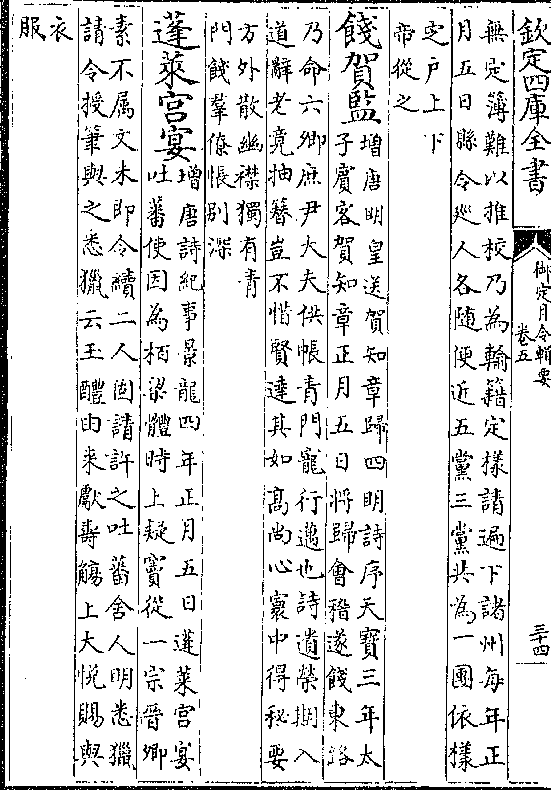 欽定四庫全書
御定月令輯要
卷五
三十四
無定簿難以推校乃為輸籍定樣請遍下諸州每年正
月五日縣令巡人各隨便近五黨三黨共為一團依樣
定戶上下
帝從之
餞賀監
增唐明皇送賀知章歸四明詩序天寶三年太
子賓客賀知章正月五日將歸會稽遂餞東路
乃命六卿庶尹大夫供帳青門寵行邁也詩遺榮期入
道辭老竟抽簪豈不惜賢達其如高尚心寰中得秘要
方外散幽襟獨有青
門餞羣僚悵別深
蓬萊宮宴
增唐詩紀事景龍四年正月五日蓬萊宮宴
吐蕃使因為栢梁體時上疑竇從一宗晉卿
素不屬文未即令續二人固請許之吐蕃舍人明悉獵
請令授筆與之悉獵云玉醴由来獻壽觴上大悅賜與
衣
服